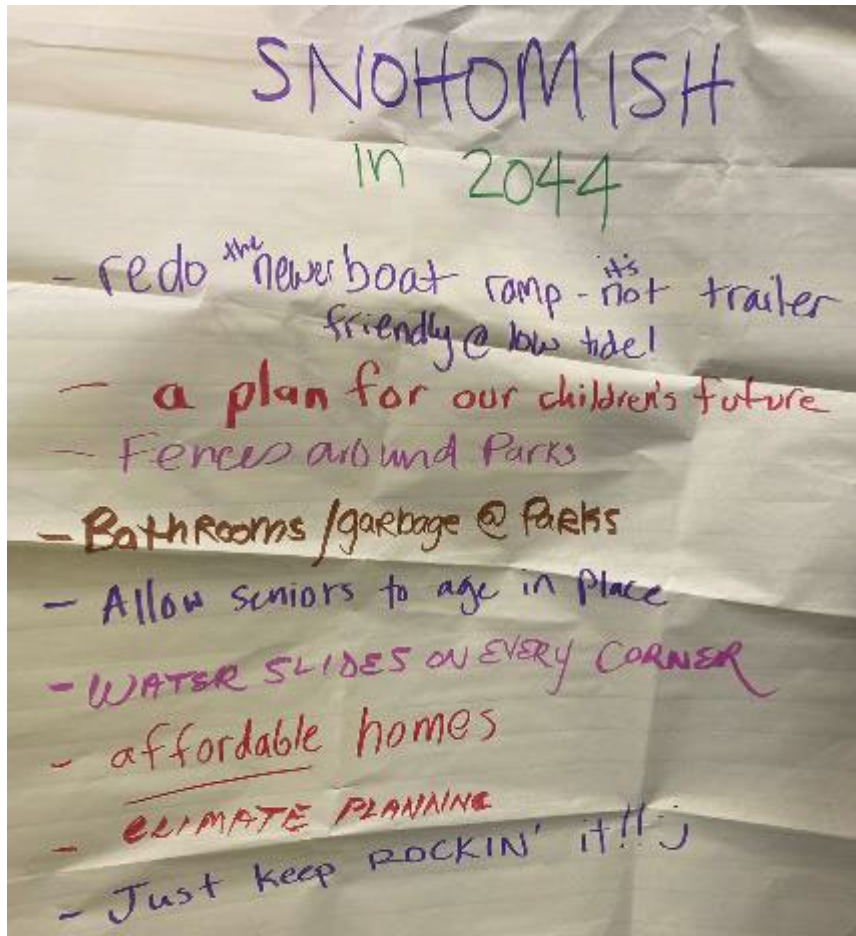 SNOHOMISH
in 2044
- redo the newer boat ramp - it's not trailer
friendly @ low tide!
- a plan for our children's future
- Fences around Parks
- BathRooms/gaRbage @ PaRks
- Allow seniors to age in place
- WATER SLIDES ON EVERY CORNER
- affordable homes
- CLIMATE PLANNING
- Just keep ROCKIN' it!! :)